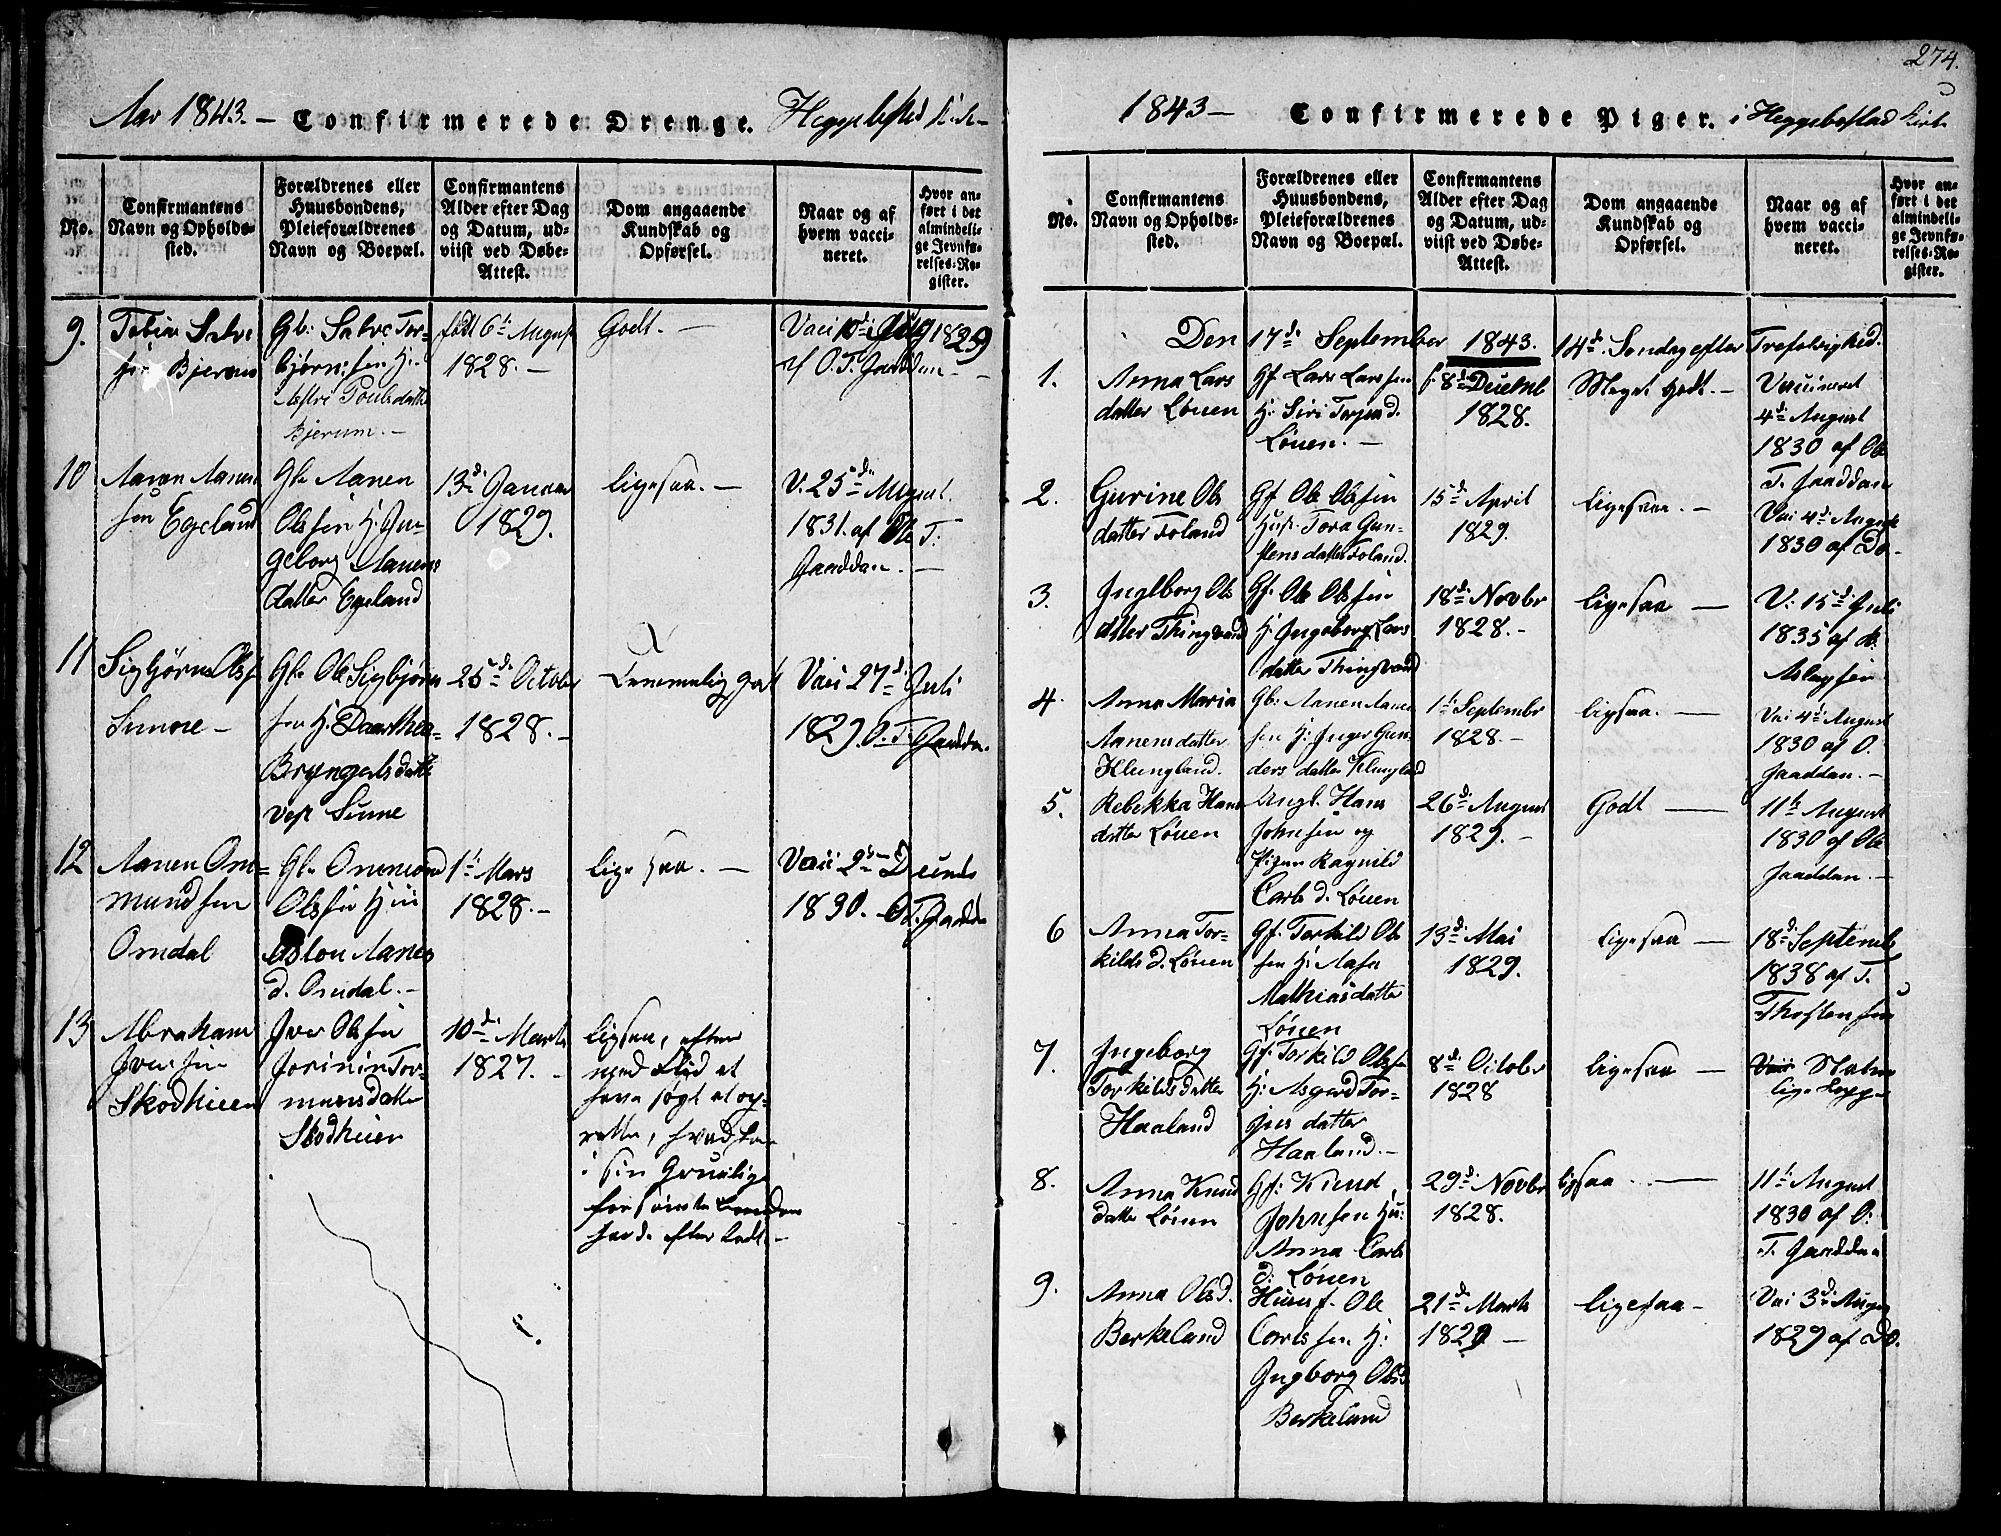 Aar 1843. – Confirmerede Drenge. Heggebested Kirke
No.
Confirmantens
Navn og Opholds-
sted.
Forældrenes eller
Huusbondens,
Pleieforældrenes
Navn og Boepæl.
Confirmantens
Alder efter Dag
og Datum, ud-
viist ved Døbe-
Attest.
Dom angaaende
Kundskab og
Opførsel.
Naar og af
hvem vacci-
neret.
Hvor an-
ført i det
almindeli-
ge Jevnfø-
relses-Re-
gister.
9.
Tobias Salve
sen Bjerum
Gb: Salve Tor-
bjørnsen H:
Astri Poulsdatter
Bjerum. –
født 6te August
1828. –
Godt. –
Vaci Aug 1829
af O. T. Jaaddan –
10
Aanen Aanen
sen Egeland
Gb. Aanen
Olsen H: In-
geborg Aanens
datter Egeland
13de Januar
1829.
ligesaa. –
V. 25de August
1831. af Ole T:
Jaaddan. –
11
Sigbjørn Olss
Sunne –
Gb. Ole Sigbjørn
sen H: Daarthea
Bryngelsdatter
Vest Sunne
25de October
1828. –
Temmelig godt
Vaci 27de Juli
1829. O. T. Jaaddan.
12
Aanen Om-
mundsen
Omdal
Gb. Ommund
Olssen Hu:
Aslou Aanens
d. Omdal. –
1te Mars
1828. –
ligesaa. –
Vaci 2den Decemb
1830. O. T. Jaaddan
13
Abraham
Iversen
Skodheien
Iver Olsen
Jorinin Tor-
munsdatter
Skodheien
10de Marts
1827. –
ligesaa, efter
med Flid at
have søgt at op-
rette, hvad han
i sin Gruelige
forsømte
havde efterladt. –
274.
1843 – Confirmerede Piger. i Heggebestad Kirke
No.
Confirmantens
Navn og Opholds-
sted.
Forældrenes eller
Huusbondens,
Pleieforældrenes
Navn og Boepæl.
Confirmantens
Alder efter Dag
og Datum, ud-
viist ved Døbe-
Attest.
Dom angaaende
Kundskab og
Opførsel.
Naar og af
hvem vacci-
neret.
Hvor an-
ført i det
almindeli-
ge Jevnfø-
relses-Re-
gister.
Den 17de September 1843. 14de Søndag efter Trefoldighed.
1.
Anna Lars
datter Løuen
Gf Lars Larssen
H: Siri Terjesd.
Løuen. –
f. 8de Decembr
1828.
Meget Godt. –
Vaccineret
4de August
1830 af Ole
T. Jaaddan
2.
Gurine Ols
datter Foland
Gf Ole Olssen
Hust: Tora Gun-
stensdatter Foland.
15de April
1829.
ligesaa. –
Vai 4de August
1830 af Do. –
3.
Ingeborg Ols
datter Thingvand
Gf. Ole Olssen
H: Ingeborg Lars
datter Thingvand
18de Novbr
1828. –
ligesaa –
V: 15de Juli
1835 af
Aslagsen
4.
Anna Maria
Aanensdatter
Klungland.
Gb: Aanen Aanen
sen H: Inger Gun-
dersdatter Klungland
1te Septembr
1828. –
ligsaa. –
Vai 4de August
1830 af O.
Jaaddan. –
5.
Rebekka Hans
datter Løuen
Ungk. Hans
Johnsen og
Pigen Ragnild
Carls d. Løuen
26de August
1829. –
Godt –
11te August
1830 af Ole
Jaaddan. –
6
Anna Tor-
kilds d. Løuen
Gf. Torkild Ols
sen H: Aasa
Mathiasdatter
Løuen
13de Mai
1829.
ligesaa –
18de Septemb
1838 af T.
Thorstensen
7.
Ingeborg
Torkildsdatter
Haaland
Gf. Torkild Olss
H: Asgerd Tor-
jusdatter
Haaland. –
8de October
1828
ligesaa –
Natur
lige Kopp-
8.
Anna Knud
datter Løuen
Gf: Knud
Johnsen Hu:
Anna Carls
d: Løuen
29de Novbr
1828.
ligsaa. –
11te August
1830 af O:
T. Jaaddan
9.
Anna Olsd.
Berkeland
Huusf. Ole
Carlssen H:
Ingborg Olsd
Berkeland
21de Marts
1829 –
ligesaa –
Vai 3de Augus
1829 af Do.